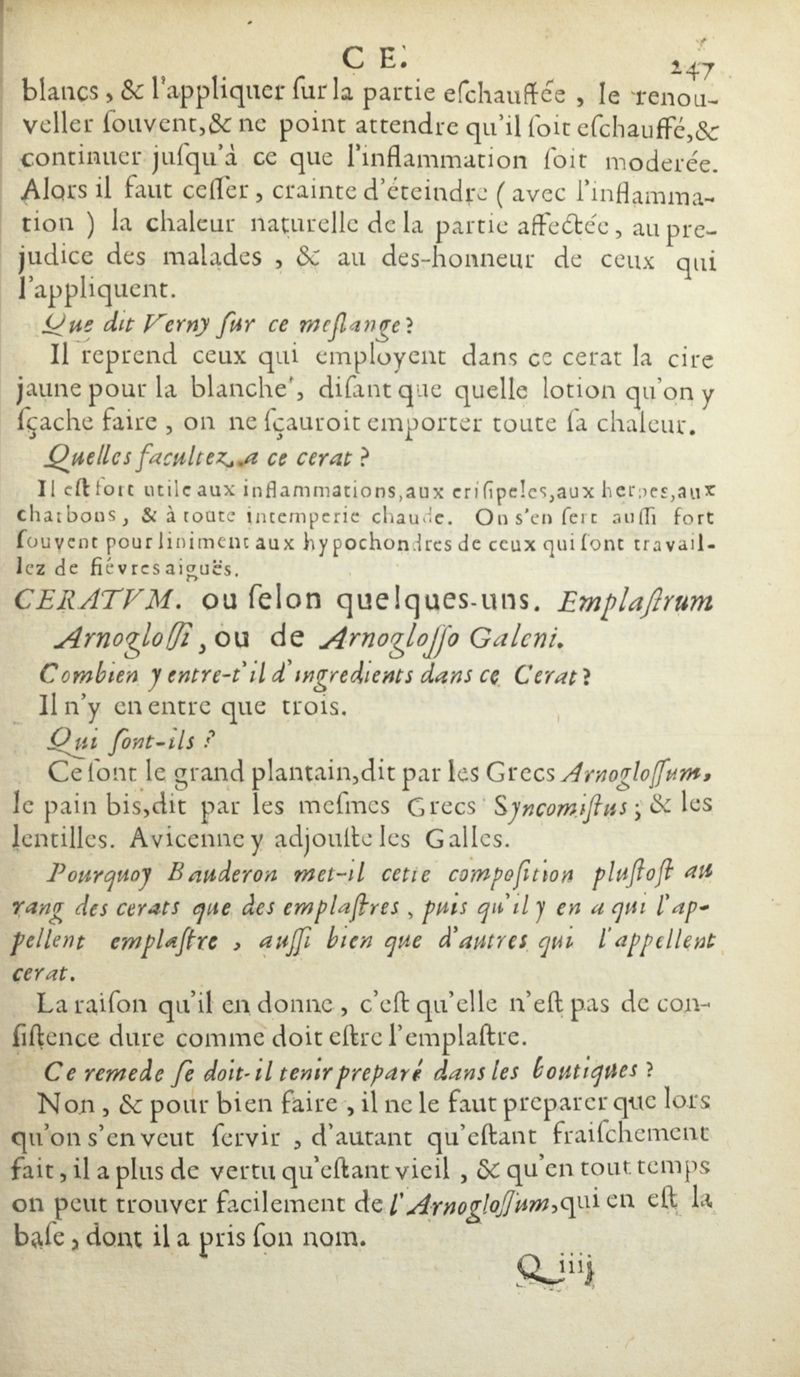 C E. 247
blancs, & l'appliquer ſur la partie eſchauffée, le renou-
veller ſouvent, & ne point attendre qu'il ſoit eſchauffé, &
continuer juſqu'à ce que l'inflammation ſoit moderée.
Alors il faut ceſſer, crainte d'éteindre (avec l'inflamma-
tion) la chaleur naturelle de la partie affectée, au pre-
judice des malades, & au des-honneur de ceux qui
l'appliquent.
Que dit Verny ſur ce meſlange?
Il reprend ceux qui employent dans ce cerat la cire
jaune pour la blanche, diſant que quelle lotion qu'on y
ſçache faire, on ne ſçauroit emporter toute ſa chaleur.
Quelles facultez a ce cerat?
Il eſt fort utile aux inflammations, aux eriſipeles, aux herpes, aux
charbons, & à toute intemperie chaude. On s'en ſert auſſi fort
ſouvent pour liniment aux hypochondres de ceux qui ſont travail-
lez de fiévres aiguës.
CERATVM. ou ſelon quelques-uns. Emplaſtrum
Arnogloſſi, ou de Arnogloſſo Galeni.
Combien y entre-t'il d'ingredients dans ce Cerat?
Il n'y en entre que trois.
Qui ſont-ils?
Ce ſont le grand plantain, dit par les Grecs Arnogloſſum,
le pain bis, dit par les meſmes Grecs Syncomiſtus; & les
lentilles. Avicenne y adjouſte les Galles.
Pourquoy Bauderon met-il cette compoſition pluſtoſt au
rang des cerats que des emplaſtres, puis qu'il y en a qui l'ap-
pellent emplaſtre, auſſi bien que d'autres qui l'appellent
cerat.
La raiſon qu'il en donne, c'eſt qu'elle n'eſt pas de con-
ſiſtence dure comme doit eſtre l'emplaſtre.
Ce remede ſe doit-il tenir preparé dans les boutiques?
Non, & pour bien faire, il ne le faut preparer que lors
qu'on s'en veut ſervir, d'autant qu'eſtant fraiſchement
fait, il a plus de vertu qu'eſtant vieil, & qu'en tout temps
on peut trouver facilement de l'Arnogloſſum, qui en eſt la
baſe, dont il a pris ſon nom.
Q iiij